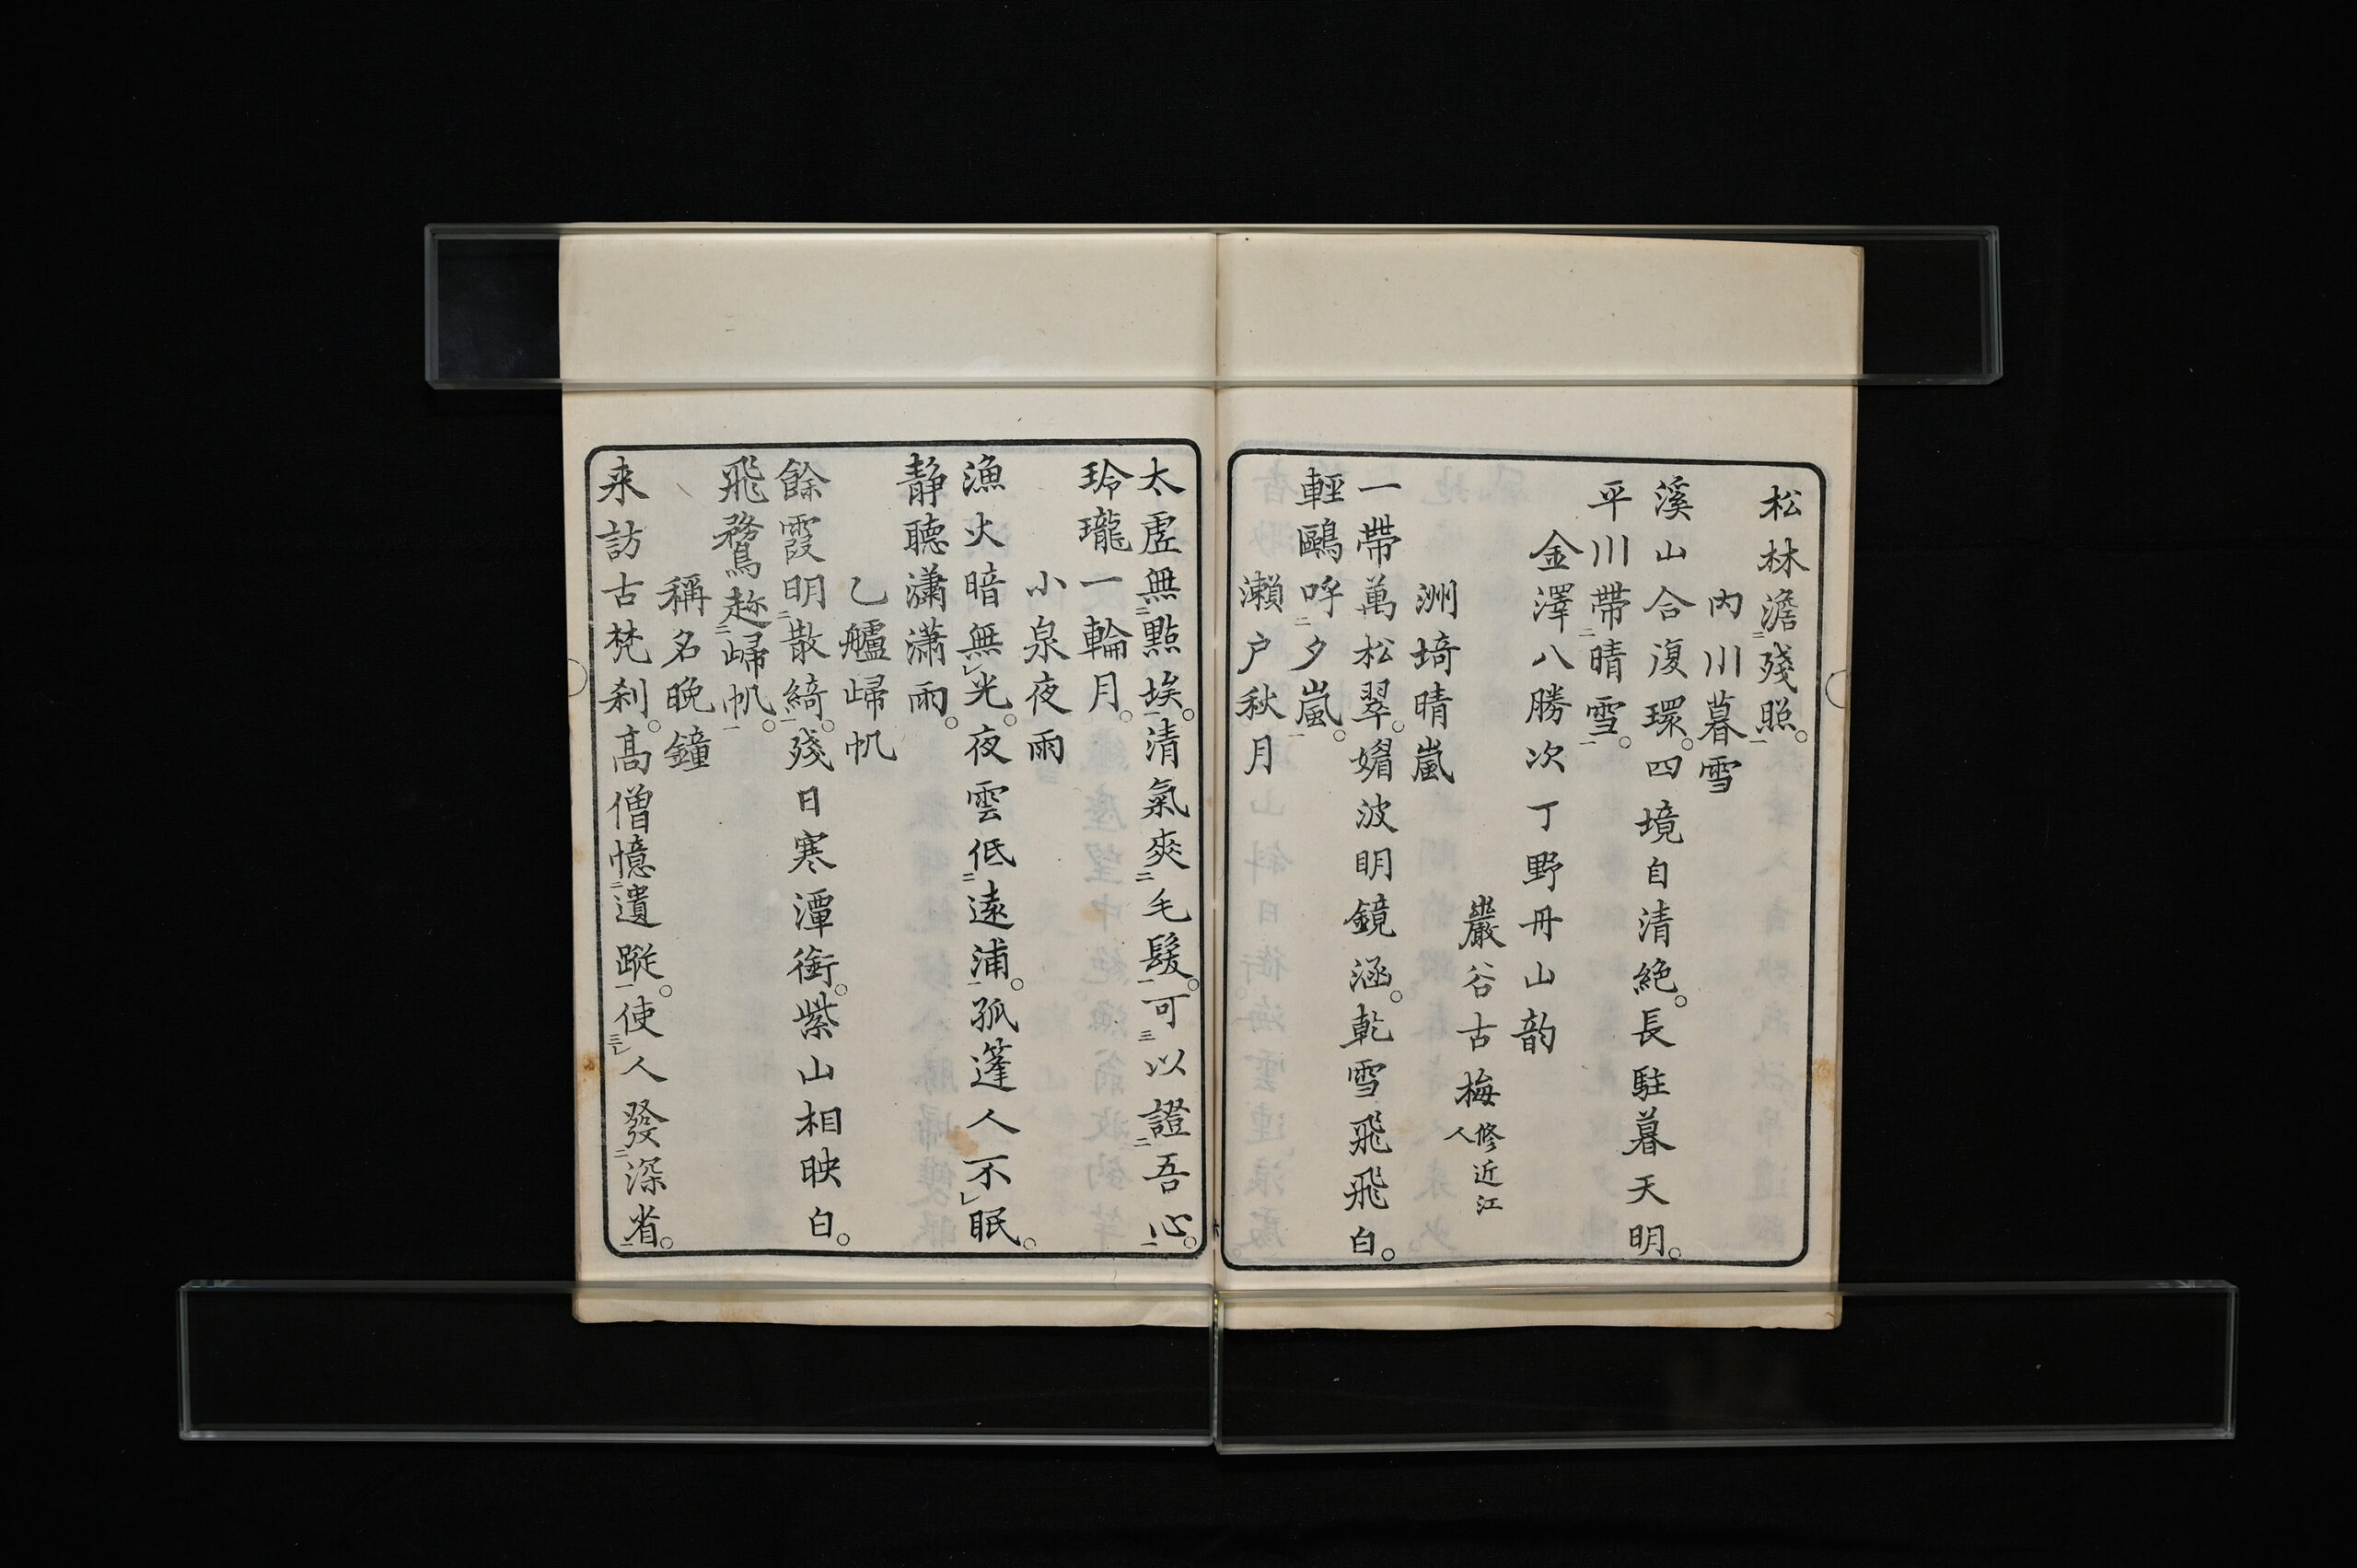 松林澹殘照。
内川暮雪
溪山合復環。四境自清絶。長駐暮天明。
平川帶晴雪。
金澤八勝次丁野丹山韵
巖谷古梅修近江人
洲埼晴嵐
一帶萬松翠。嫋波明鏡涵。乾雪飛飛白。
輕鷗呼夕嵐。
瀨户秋月
太虛無點埃。清氣爽毛髮。可以證吾心。
玲瓏一輪月。
小泉夜雨
漁火暗無光。夜雲低遠浦。孤篷人不眠。
静聽瀟瀟雨。
乙艫歸帆
餘霞明散綺。殘日寒潭銜。紫山相映白。
飛鶩趂歸帆。
稱名晚鐘
来訪古梵刹。高僧憶遺蹤。使人發深省。